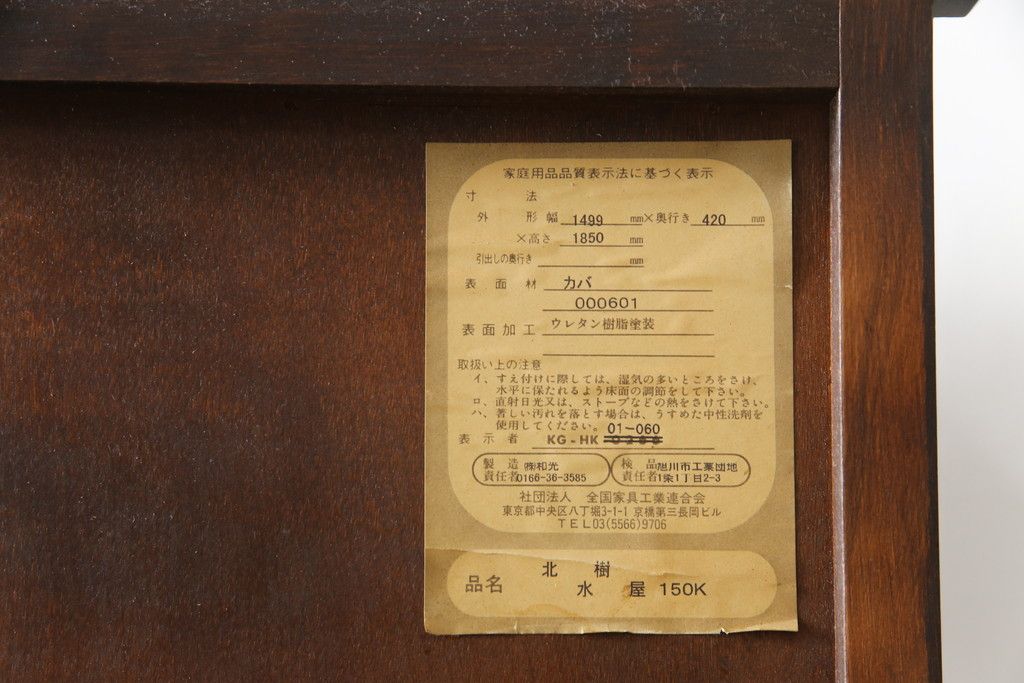 家庭用品品質表示法に基づく表示
寸法
外形幅 1499 mm×奥行き 420 mm
×高さ 1850 mm
引出しの奥行き mm
表面材 カバ
000601
表面加工 ウレタン樹脂塗装
取扱い上の注意
イ、すえ付けに際しては、湿気の多いところをさけ、
水平に保たれるよう床面の調節をして下さい。
ロ、直射日光又は、ストーブなどの熱をさけて下さい。
ハ、著しい汚れを落とす場合は、うすめた中性洗剤を
使用してください。 01-060
表示者 KG-HK
製造 ㈱和光 検品 旭川市工業団地
責任者 0166-36-3585 責任者 1条1丁目2-3
社団法人 全国家具工業連合会
東京都中央区八丁堀3-1-1 京橋第三長岡ビル
TEL03(5566)9706
北樹
品名
水屋 150K